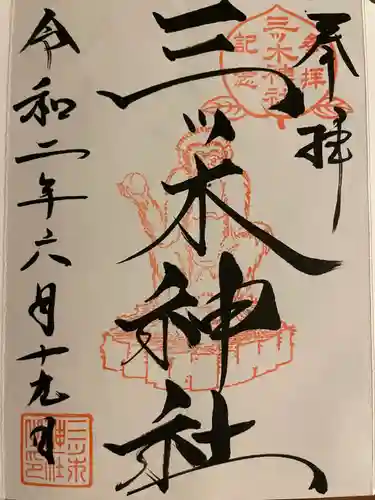 奉拝
三ッ木神社
参拝
記念
三ッ木神社
令和二年六月十九日